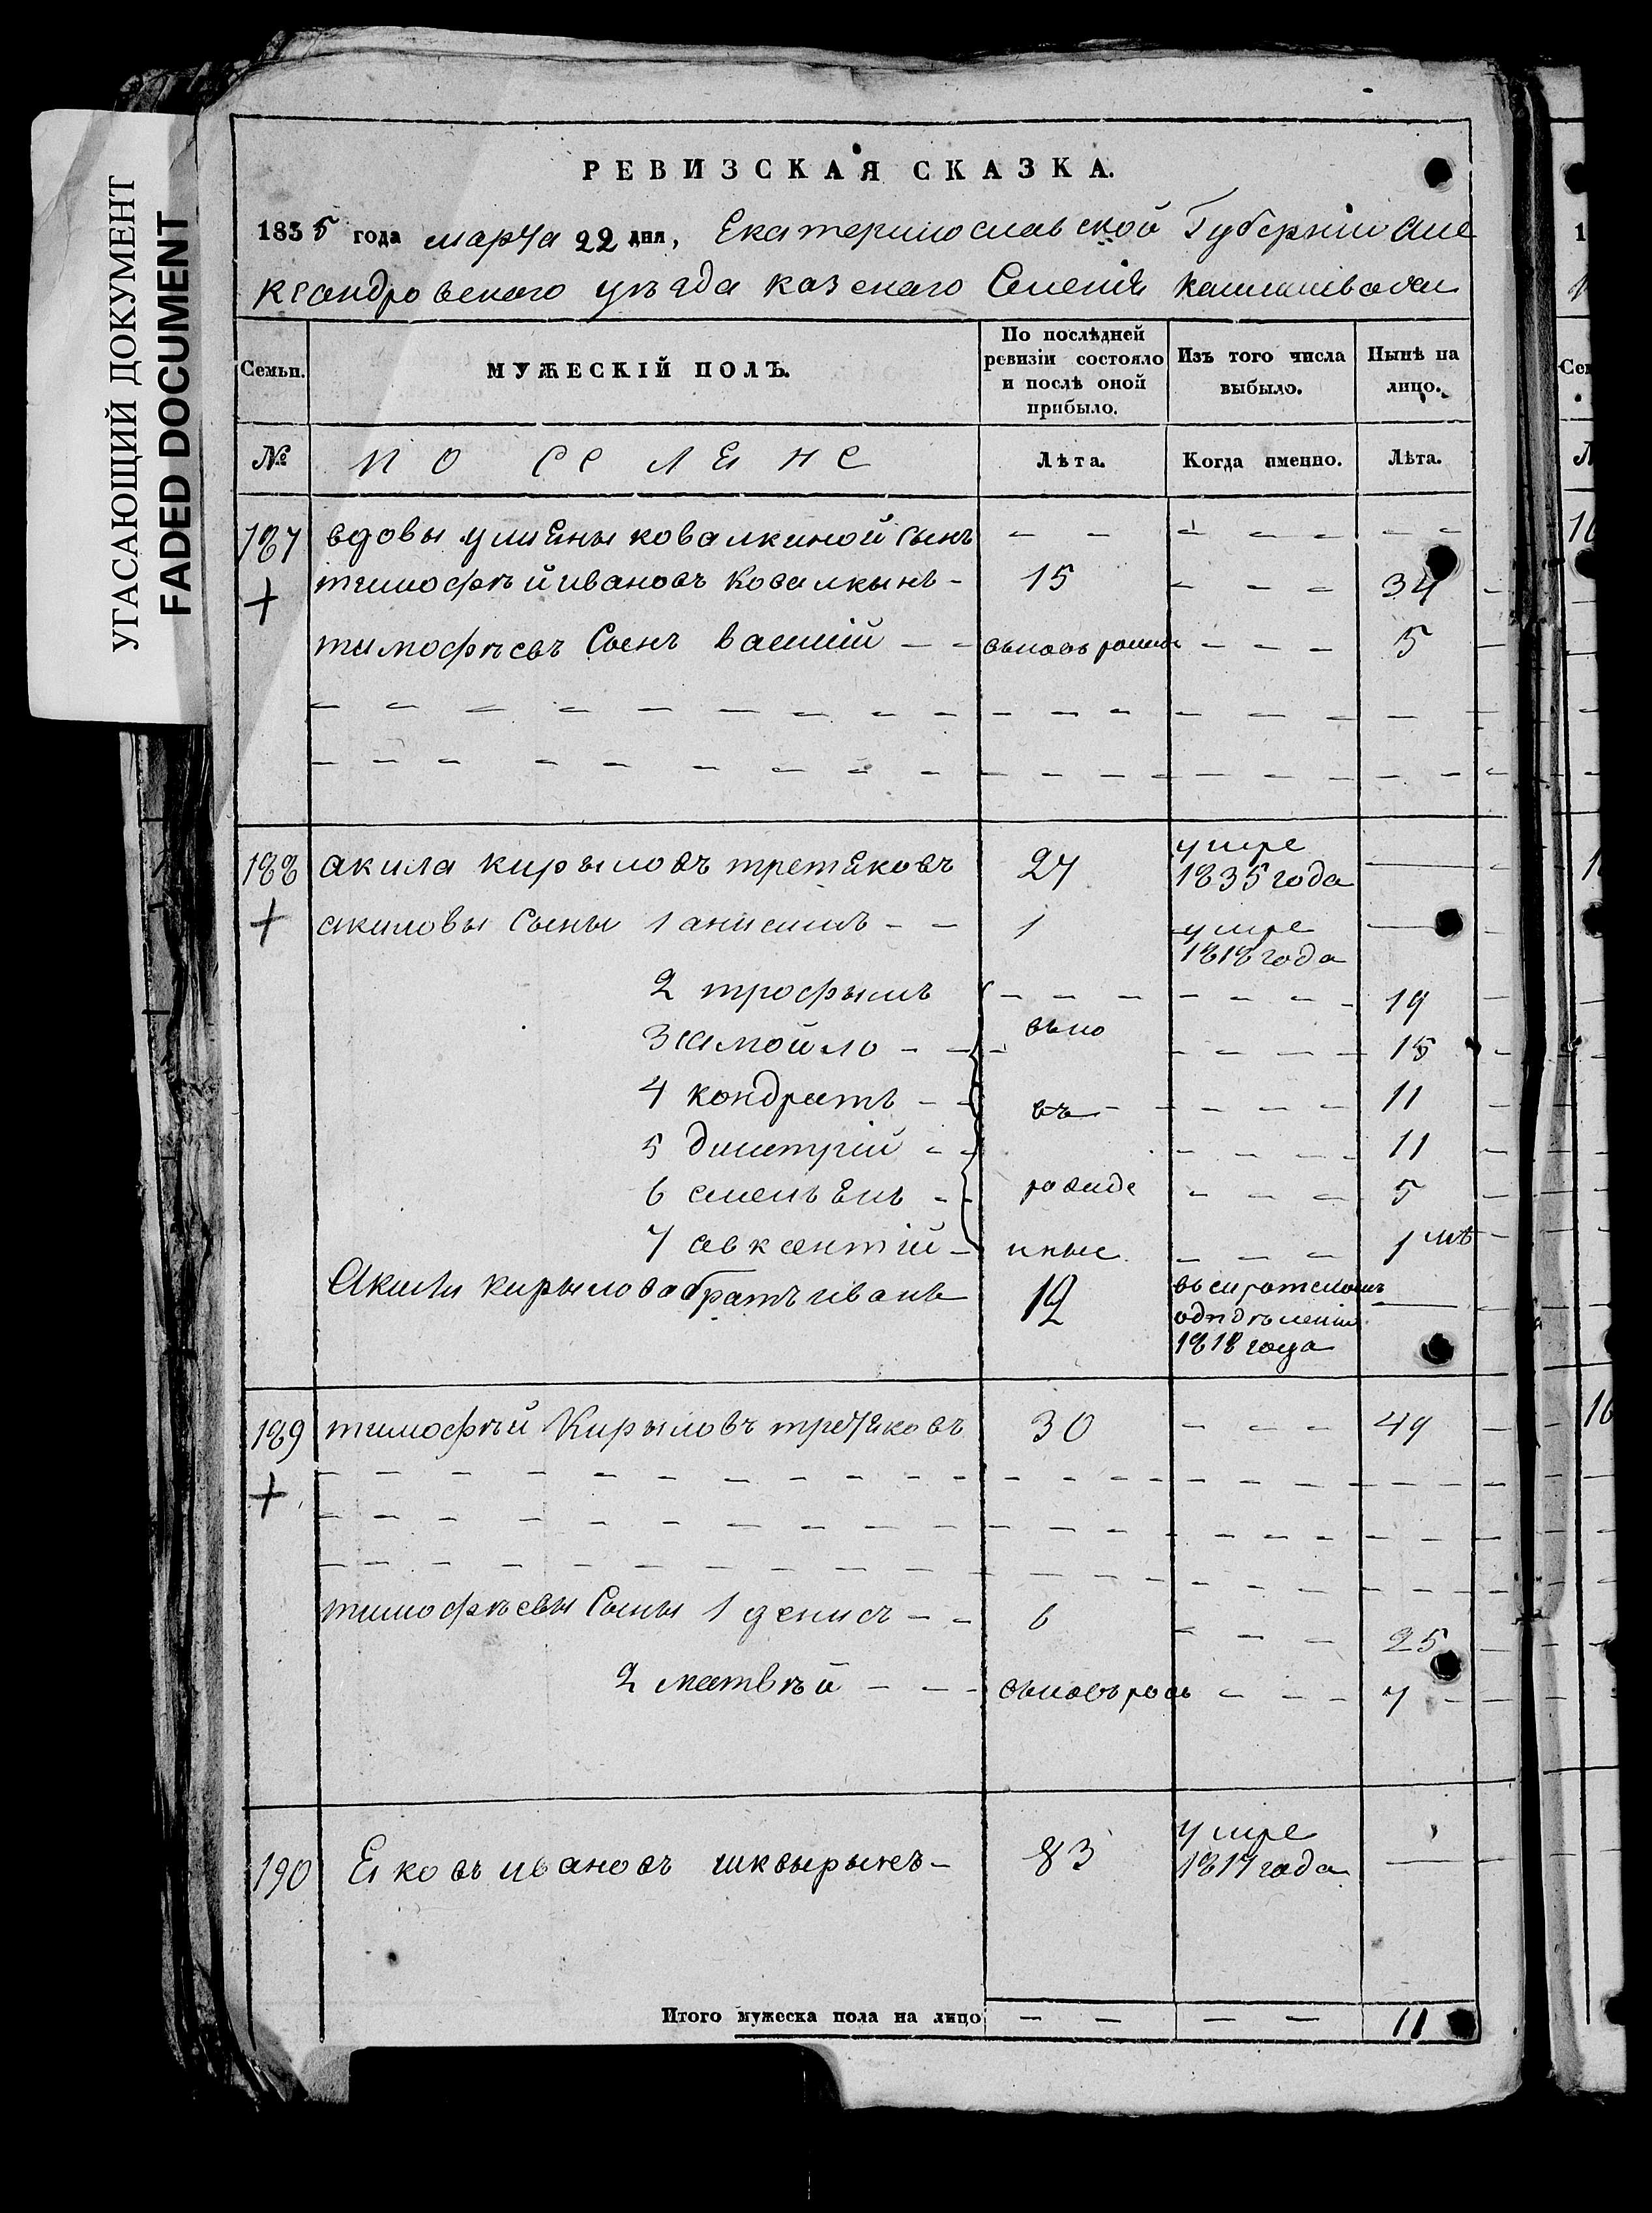 УГАСАЮЩИЙ ДОКУМЕНТ
FADED DOCUMENT
РЕВИЗСКАЯ СКАЗКА.
1835 года марта 22 дня, Екатеринославской Губернии Але
ксандровскаго уезда казенаго Селения
Семьи. МУЖЕСКІЙ ПОЛЪ. По послѣдней ревизіи состояло и послѣ оной прибыло. Изъ того числа выбыло. Нынѣ на лицо.
№ По селене Лѣта. Когда именно. Лѣта.
187 вдовы улияны ковалкиной сынъ
тимофѣй ивановъ Ковалкынъ 15 34
тимофѣевъ Сынъ василій 5
188 акила кирыловъ третяковъ 27 умре 1835 года
акиловы Сыны 1 анисимъ 1 умре 1818 года
2 трофымъ 19
3 самойло вьно 15
4 кондратъ въ 11
5 димитрій 11
6 5
7 авксентій иные 1 мѣ
Акилы кирылова братъ иванъ 12 1818 года
189 тимофѣй Кирыловъ третяковъ 30 49
тимофѣевы Сыны 1 денисъ 6 25
2 матвѣй 7
190 Яковъ ивановъ шквырынъ 83 умре 1817 года
Итого мужеска пола на лицо 11